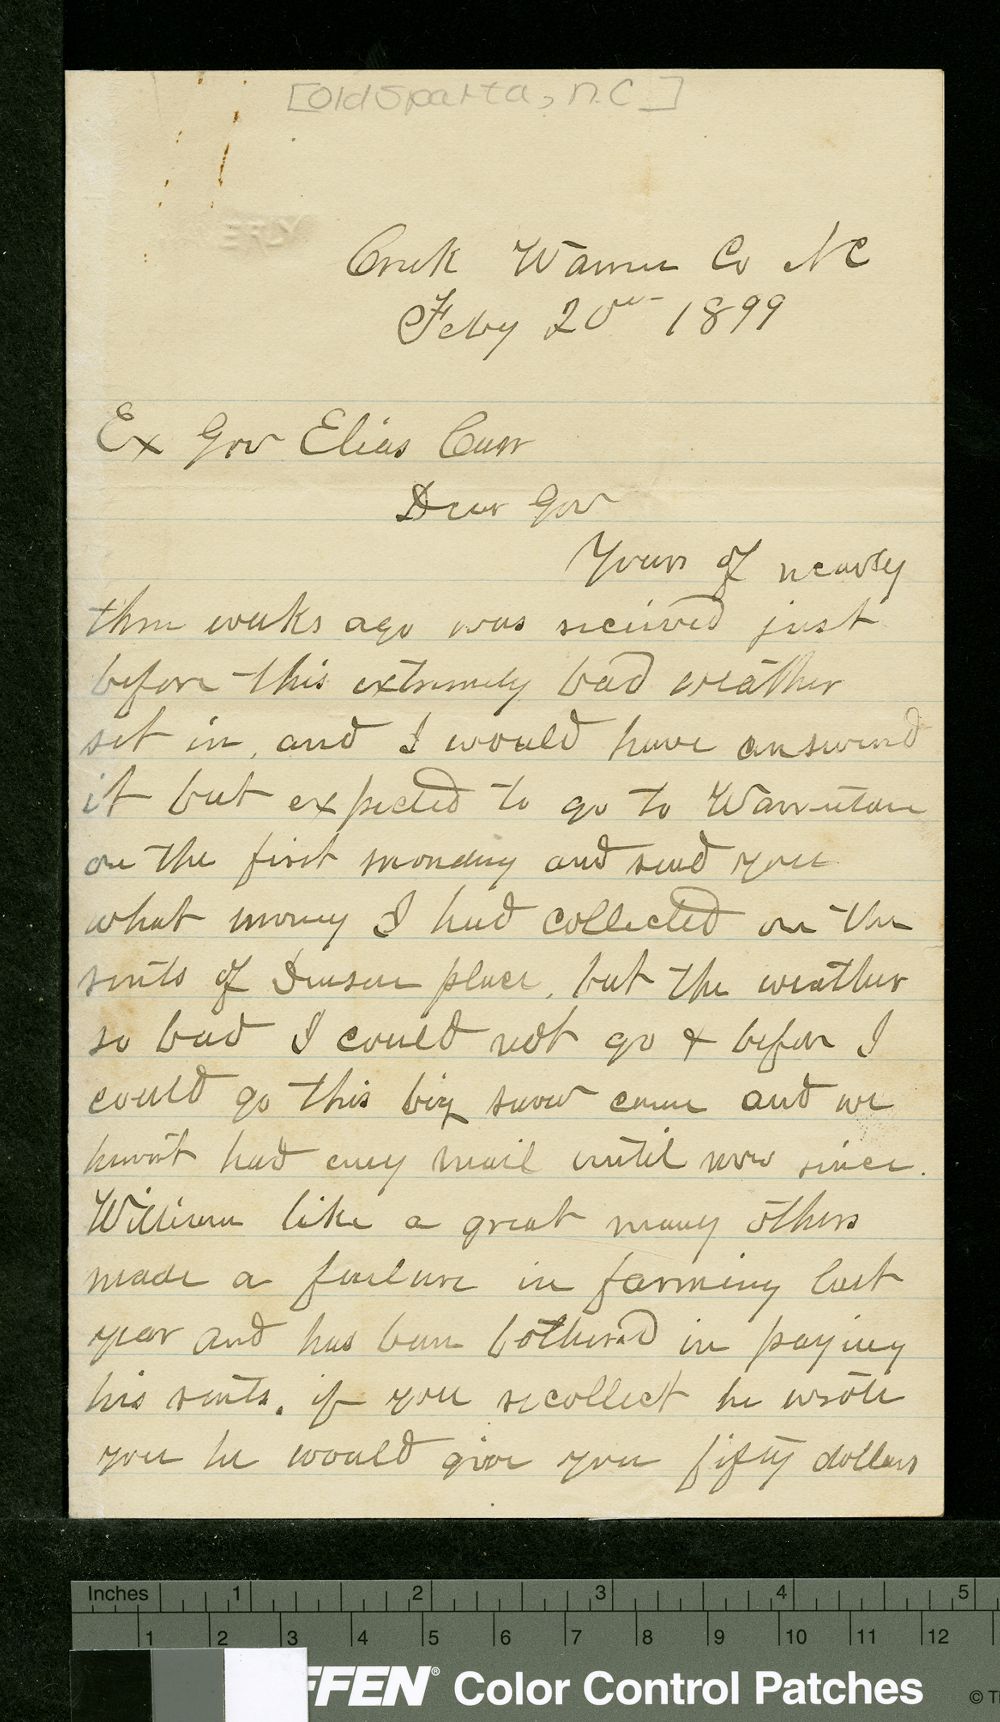 [Old Sparta, N.C.]
Creek Warren Co NC
Feby 20th 1899
Ex Gov Elias Carr
Dear Gov
Yours of nearly
three weeks ago was received just
before this extremely bad weather
set in, and I would have answered
it but expected to go to Warrenton
on the first monday and send you
what money I had collected on the
rents of place, but the weather
so bad I could not go & before I
could go this big snow came and we
havent had any mail until now since.
William like a great many others
made a failure in farming last
year and has been bothered in paying
his rents. if you recollect he wrote
you he would give you fifty dollars
Inches 1 2 3 4 5
1 2 3 4 5 6 7 8 9 10 11 12
FFEN® Color Control Patches